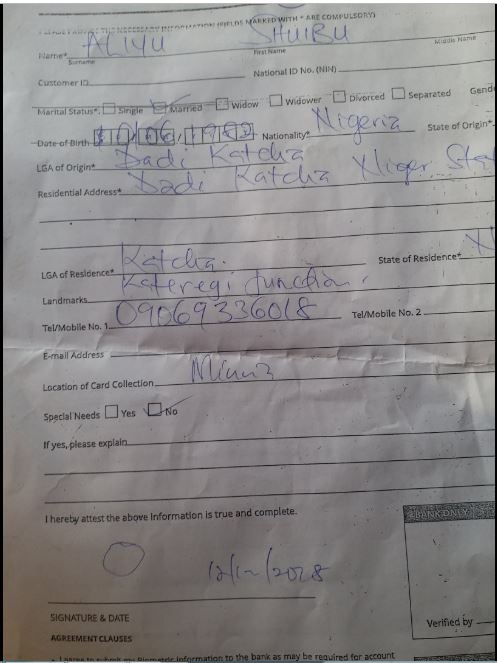 PLEASE PROVIDE THE NECESSARY INFORMATION (FIELDS MARKED WITH * ARE COMPULSORY)
Name* ALIYU SHUIBU
Surname First Name Middle Name
Customer ID National ID No. (NIN)
Marital Status*: Single Married Widow Widower Divorced Separated Gend
Date of Birth Nationality* Nigeria State of Origin*
LGA of Origin* Dadi Katcha
Residential Address* Dadi Katcha Niger Stat
LGA of Residence* Katcha. State of Residence* N
Landmarks Kateregi Junction.
Tel/Mobile No. 1 09069336018 Tel/Mobile No. 2
E-mail Address
Location of Card Collection Minna
Special Needs Yes No
If yes, please explain
I hereby attest the above information is true and complete.
BANK ONLY
SIGNATURE & DATE
Verified by
AGREEMENT CLAUSES
information to the bank as may be required for account